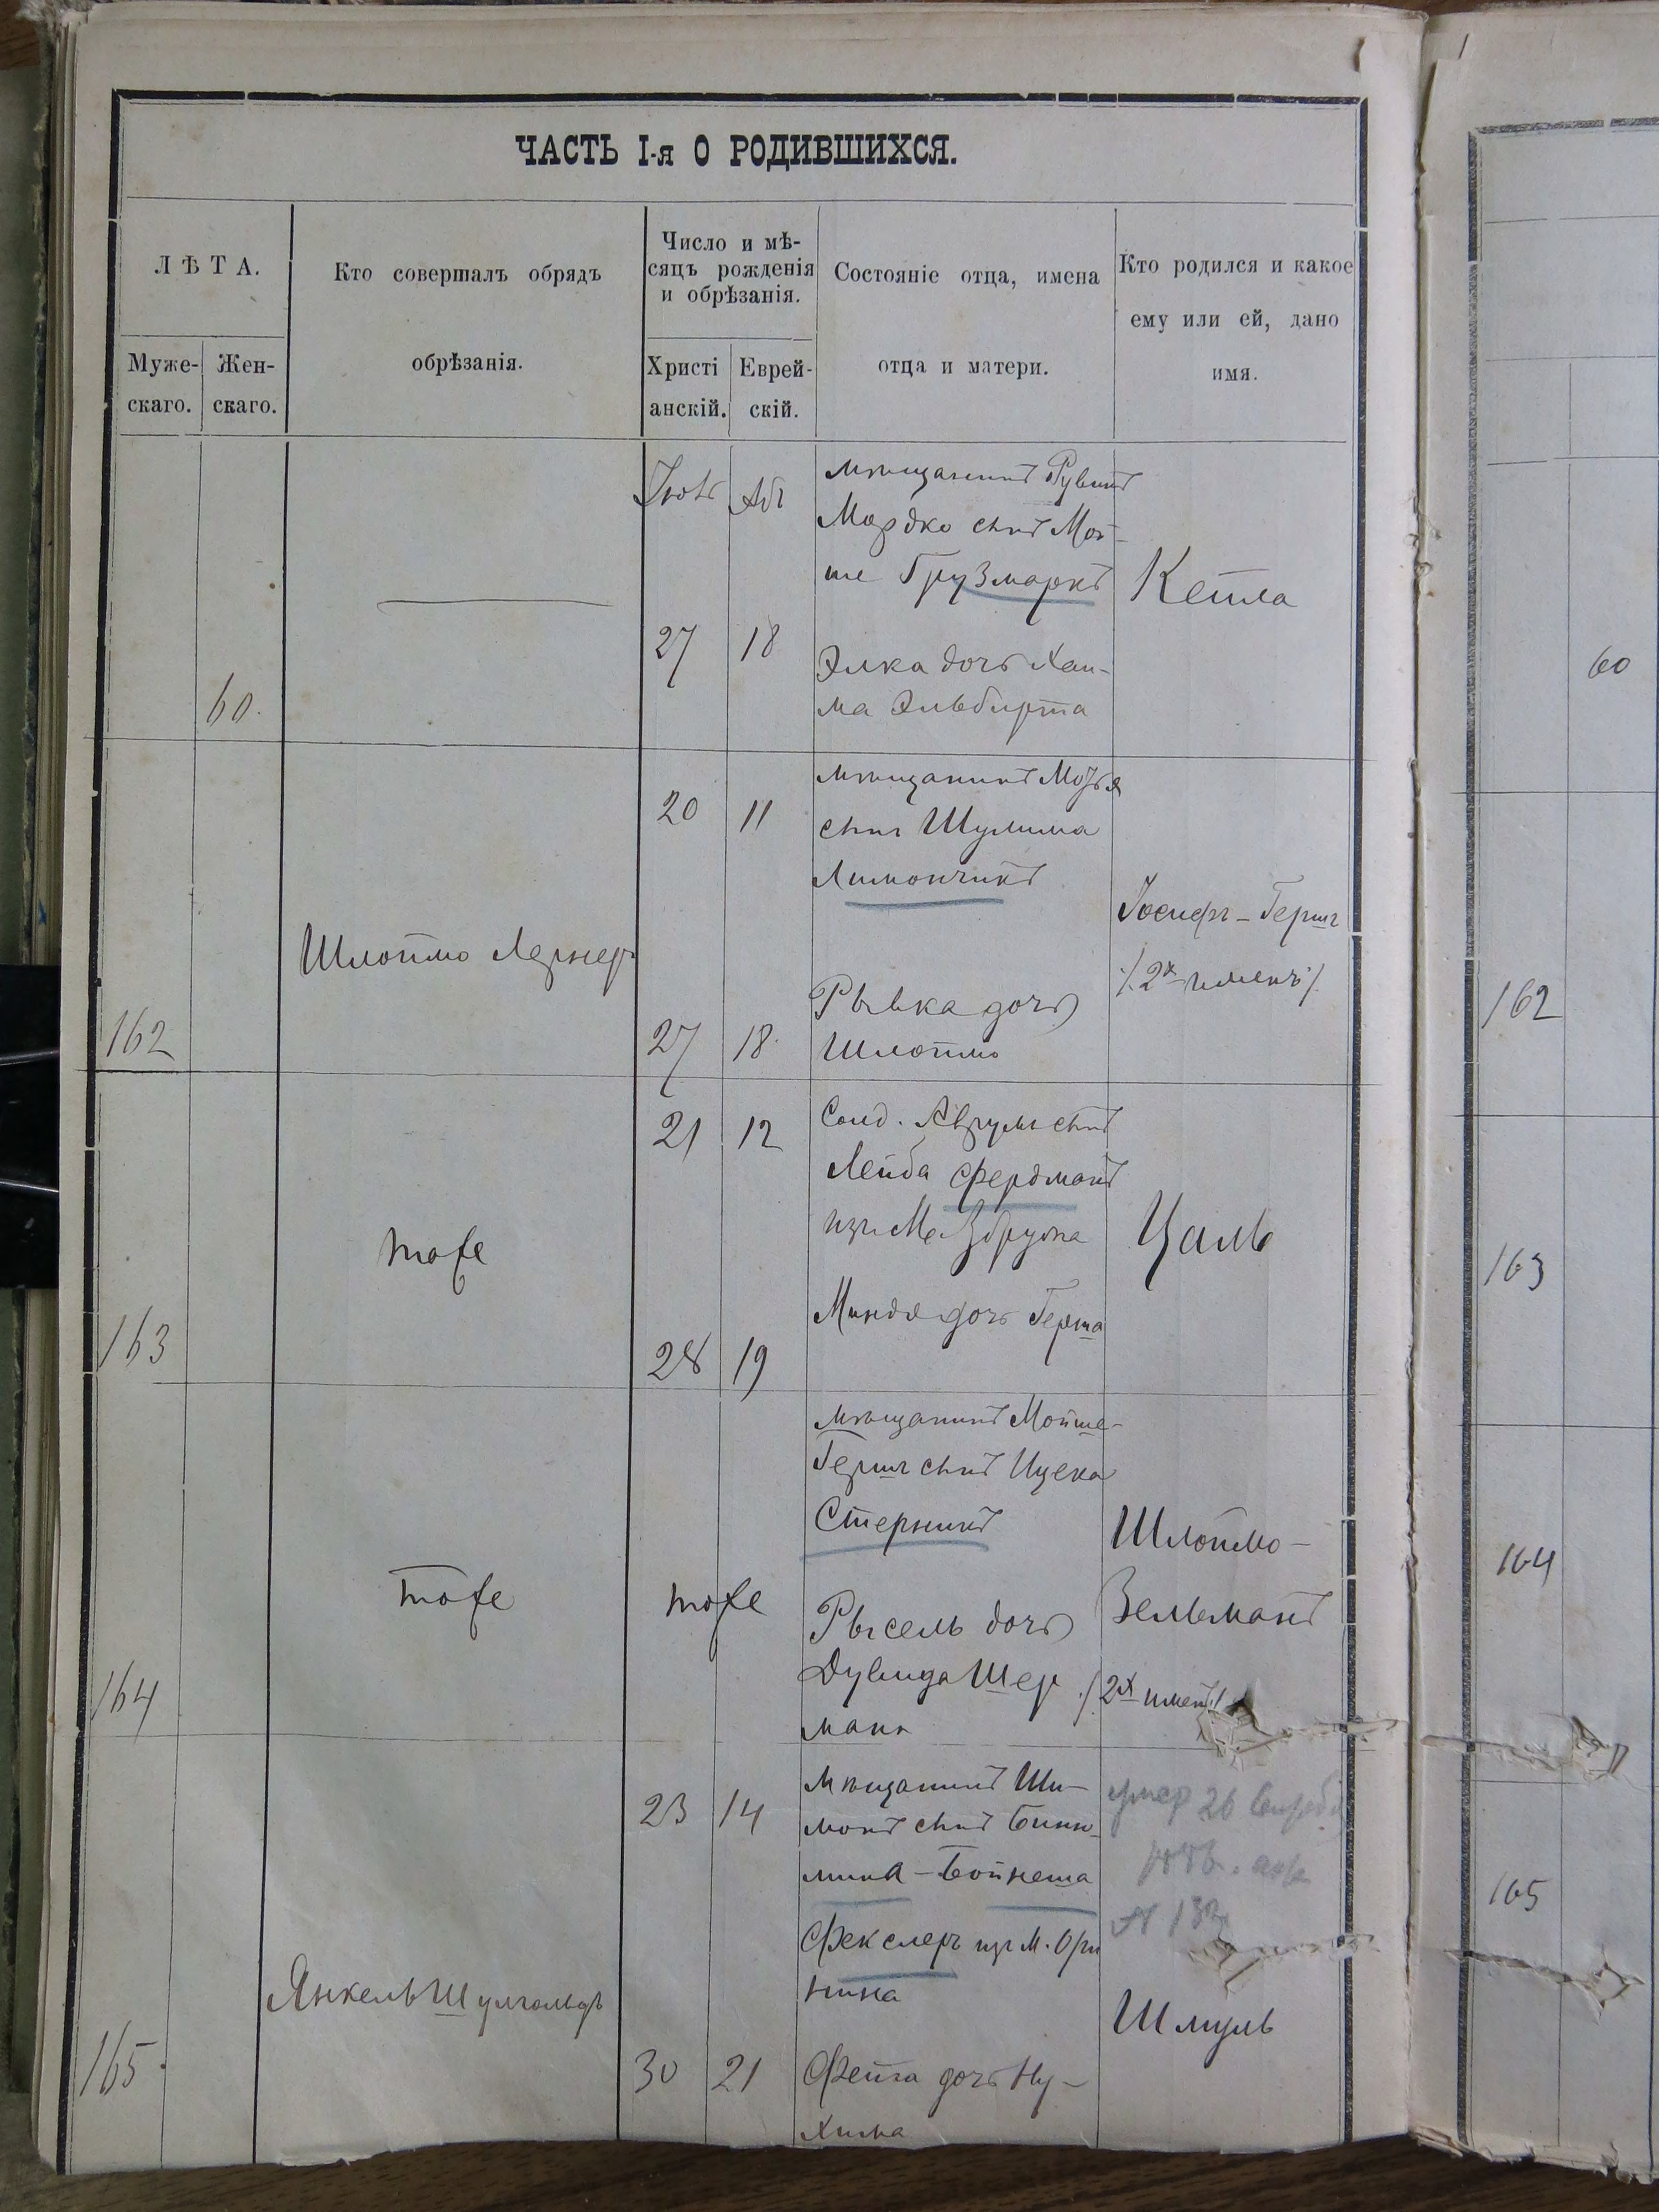 ЧАСТЬ I-я О РОДИВШИХСЯ.
ЛѢТА.
Муже-
скаго.
Жен-
скаго.
Кто совершалъ обрядъ
обрѣзанія.
Число и мѣ-
сяцъ рожденія
и обрѣзанія.
Христі
анскій.
Еврей-
скій.
Состояніе отца, имена
отца и матери.
Кто родился и какое
ему или ей, дано
имя.
60.
Іюль
Абъ
27
18
мѣщанинъ Рувинъ
Мордко сынъ Мой-
ше Грузмаркъ
Элка дочь Хаи-
ма Эльбирта
Кейла
60
162
Шлоймо Лернеръ
20
11
27
18.
мѣщанинъ
сынъ Шулима
Лимончикъ
Рывка дочь
Шлоймо
Іосифъ-Гершъ
/.2х именъ/.
162
163
тоже
21
12
28
19
Солд. Аврумъ сынъ
Лейба Фердманъ
изъ М.
Миндя дочь Герша
Цаль
163
164
тоже
тоже
мѣщанинъ Мойше-
Гершъ сынъ Ицека
Стерникъ
Рысель дочь
Дувида Шер
манъ
Шлоймо-
Зельманъ
/.2х именъ/
164
165.
Янкель Шулгольдъ
23
14
30
21
Мѣщанинъ Ши-
монъ сынъ Биню-
мина-Бойнеша
Фекслеръ изъ М. Ори
нина
Фейга дочь Ну-
хима
умер 26
№ 132
Шмуль
165